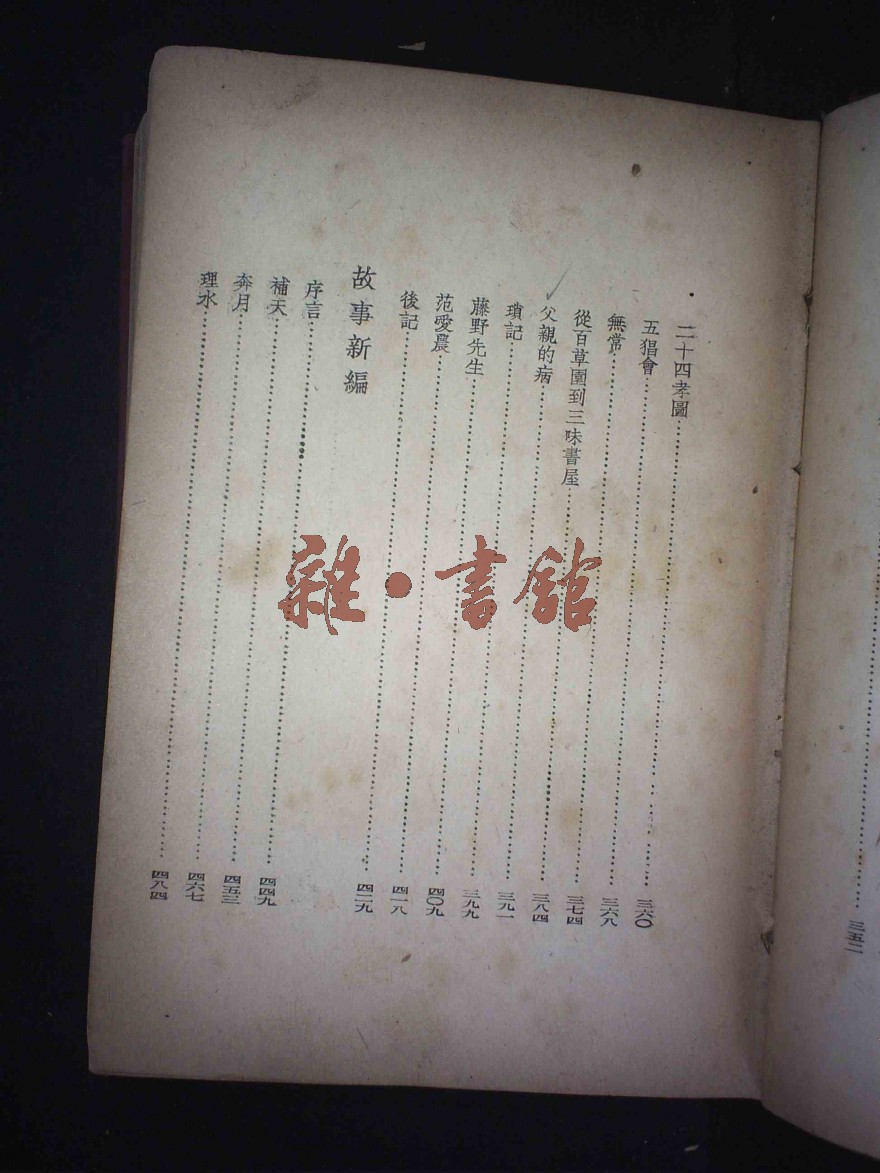 二十四孝圖……三六〇
五猖會……三六八
無常……三七四
從百草園到三味書屋……三八四
父親的病……三九一
瑣記……三九九
藤野先生……四〇九
范愛農……四一八
後記……四二九
故事新編
序言……四四九
補天……四五三
奔月……四六七
理水……四八四
三五二
雜·書館